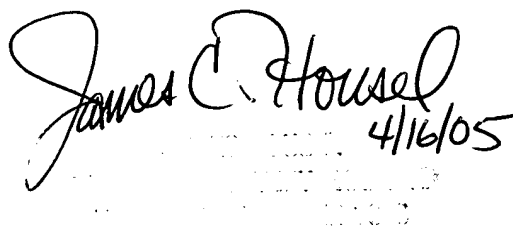 James C. Housel
4/16/05